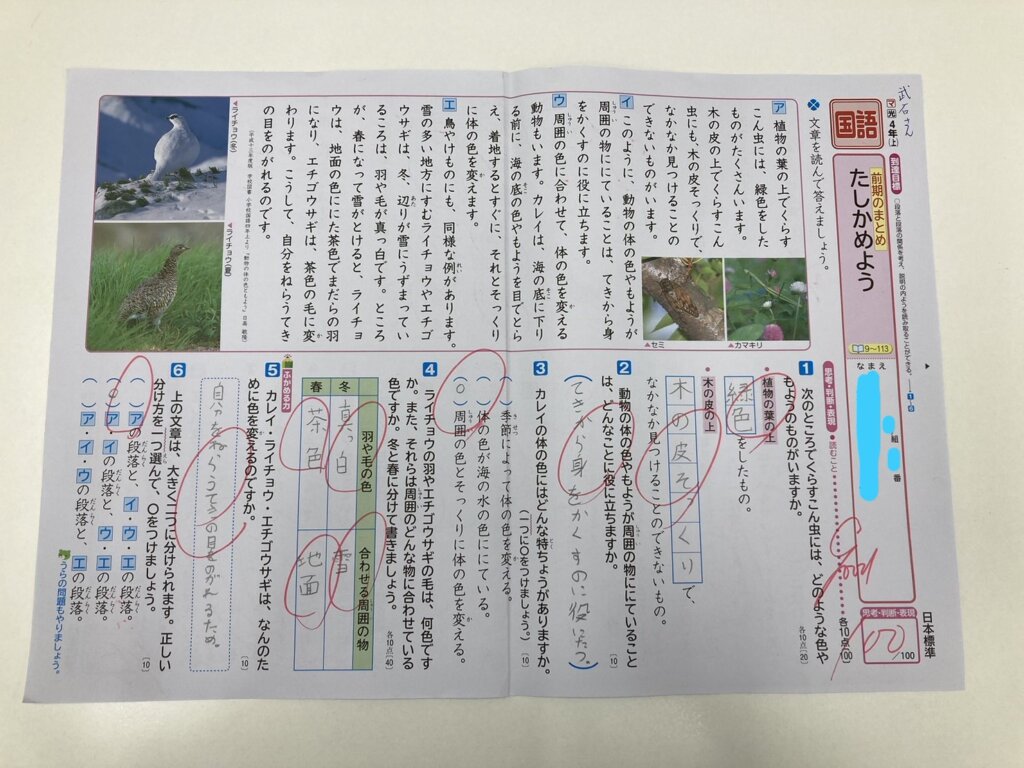 武石さん
マ 光 4年(上)
国語
到達目標
○段落と段落の関係を考え、説明の内ようを読み取ることができる。
前期のまとめ
たしかめよう
9〜113
なまえ
組
番
日本標準
思考・判断・表現
100
/100
文章を読んで答えましょう。
ア 植物の葉の上でくらす
こん虫には、緑色をした
ものがたくさんいます。
木の皮の上でくらすこん
虫にも、木の皮そっくりで、
なかなか見つけることの
できないものがいます。
イ このように、動物の体の色やもようが
周囲の物ににていることは、てきから身
をかくすのに役に立ちます。
ウ 周囲の色に合わせて、体の色を変える
動物もいます。カレイは、海の底に下り
る前に、海の底の色やもようを目でとら
え、着地するとすぐに、それとそっくり
に体の色を変えます。
エ 鳥やけものにも、同様な例があります。
雪の多い地方にすむライチョウやエチゴ
ウサギは、冬、辺りが雪にうずまってい
るころは、羽や毛が真っ白です。ところ
が、春になって雪がとけると、ライチョ
ウは、地面の色ににた茶色でまだらの羽
になり、エチゴウサギは、茶色の毛に変
わります。こうして、自分をねらうてき
の目をのがれるのです。
▲カマキリ
▲セミ
◀ライチョウ(冬)
◀ライチョウ(夏)
思考・判断・表現 ●読むこと
各10点
100
1 次のところでくらすこん虫には、どのような色や
もようのものがいますか。
各10点(20)
●植物の葉の上
緑色をしたもの。
●木の皮の上
木の皮そっくりで、
なかなか見つけることのできないもの。
2 動物の体の色やもようが周囲の物ににていること
は、どんなことに役に立ちますか。
(10)
(てきから身をかくすのに役に立つ。)
3 カレイの体の色にはどんな特ちょうがありますか。
(一つに○をつけましょう。)
(10)
( )季節によって体の色を変える。
( )体の色が海の水の色ににている。
(○)周囲の色とそっくりに体の色を変える。
4 ライチョウの羽やエチゴウサギの毛は、何色です
か。また、それらは周囲のどんな物に合わせている
色ですか。冬と春に分けて書きましょう。
各10点(40)
羽や毛の色
合わせる周囲の物
冬
真っ白
雪
春
茶色
地面
ふかめる力
5 カレイ・ライチョウ・エチゴウサギは、なんのた
めに色を変えるのですか。
(10)
自分をねらうてきの目をのがれるため。
6 上の文章は、大きく二つに分けられます。正しい
分け方を一つ選んで、○をつけましょう。
(10)
( )アの段落と、イ・ウ・エの段落。
(○)ア・イの段落と、ウ・エの段落。
( )ア・イ・ウの段落と、エの段落。
うらの問題もやりましょう。